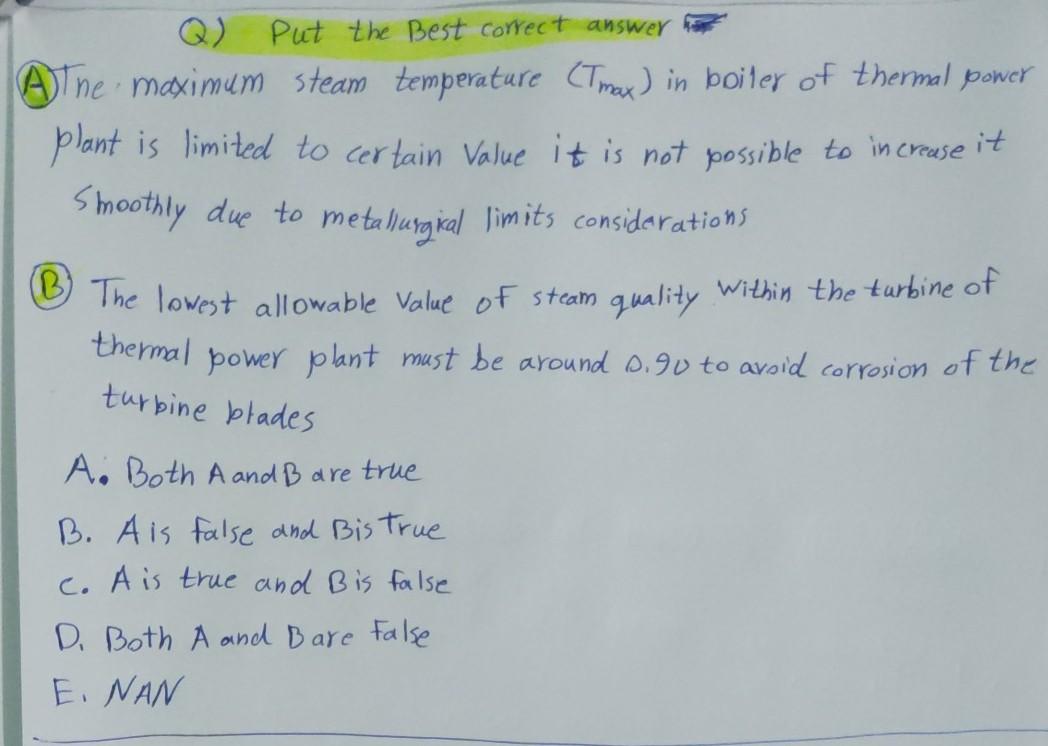 Q) Put the Best correct answer
A The maximum steam temperature (Tmax) in boiler of thermal power
plant is limited to certain Value it is not possible to increase it
Smoothly due to metallurgical limits considerations
B The lowest allowable Value of steam quality Within the turbine of
thermal power plant must be around 0.90 to avoid corrosion of the
turbine blades
A. Both A and B are true
B. A is false and B is True
C. A is true and B is false
D. Both A and B are False
E. NAN